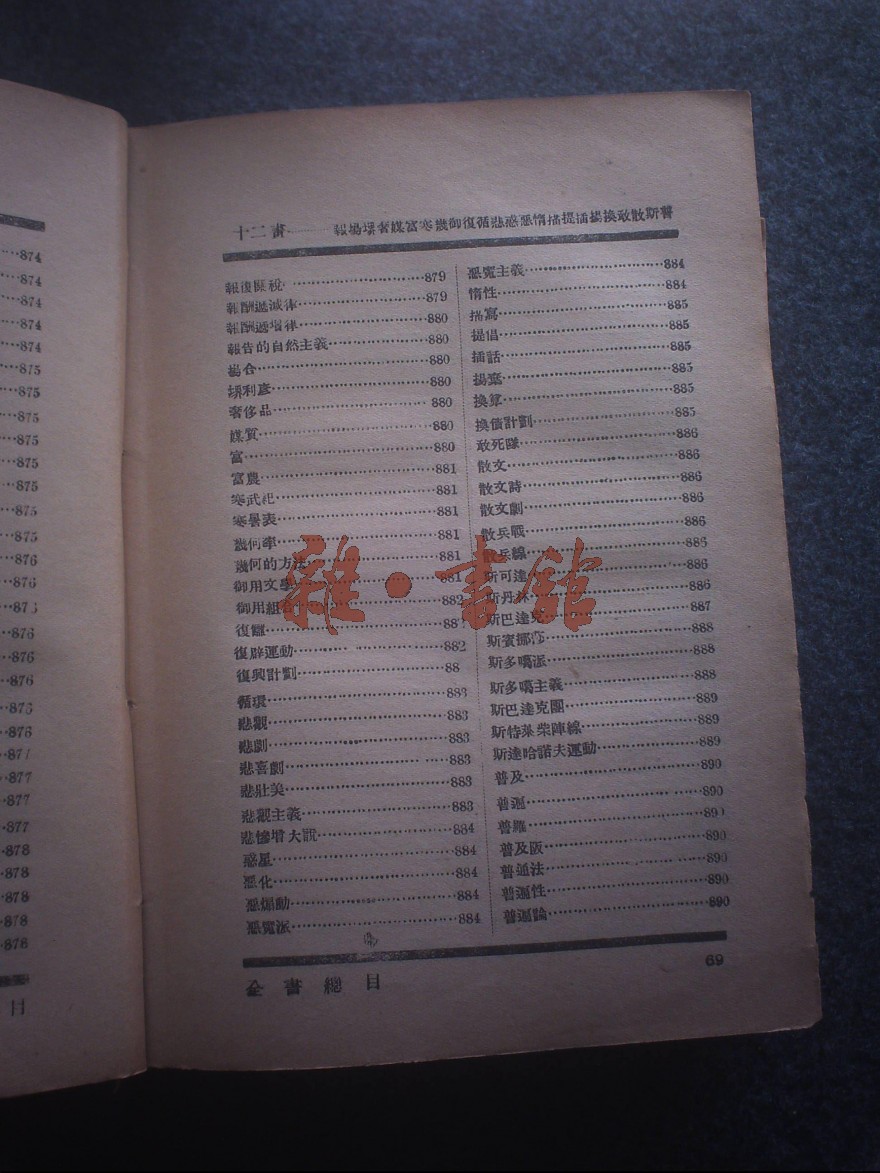 874
874
874
874
874
875
875
875
875
875
875
875
875
876
876
876
876
876
876
876
876
877
877
877
877
878
878
878
878
878
目
十二畫——報場堪奢媒富寒幾御復循悲惑惡惰描提插揚換敢散斯普
報復關稅 879
報酬遞減律 879
報酬遞增律 880
報告的自然主義 880
場合 880
奢侈品 880
媒質 880
富 880
富農 881
寒武紀 881
寒暑表 881
幾何學 881
幾何的方法 881
御用文學 881
御用組合 882
復讎
復辟運動 882
復興計劃 88
循環 883
悲觀 883
悲劇 883
悲喜劇 883
悲壯美 883
悲觀主義 883
悲慘增大說 884
惑星 884
惡化 884
惡煽動 884
惡魔派 884
惡魔主義 884
惰性 884
描寫 885
提倡 885
插話 885
揚棄 885
換算 885
換債計劃 885
敢死隊 886
散文 886
散文詩 886
散文劇 886
散兵戰 886
散兵線 886
斯可達 886
斯丹林 886
斯巴達克 887
斯賓挪莎 888
斯多噶派 888
斯多噶主義 888
斯巴達克團 889
斯特萊柴陣線 889
斯達哈諾夫運動 889
普及 890
普遍 890
普羅 890
普及版 890
普通法 890
普遍性 890
普遍論 890
全書總目
69
雜·書館